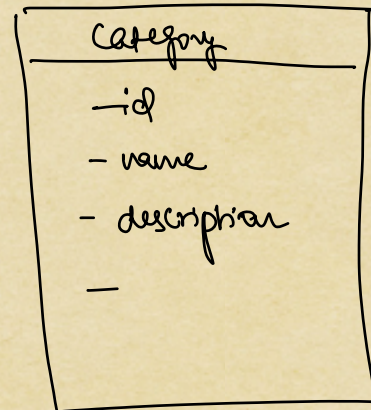 Category
- id
- name
- description
-